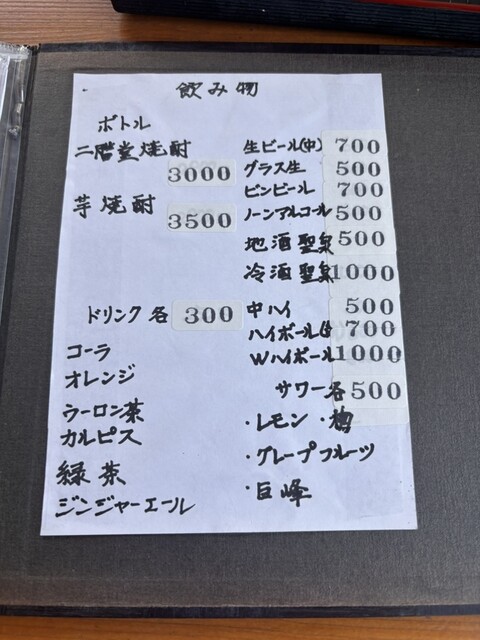 飲み物
ボトル
二階堂焼酎
3000
芋焼酎
3500
ドリンク各 300
コーラ
オレンジ
ウーロン茶
カルピス
緑茶
ジンジャーエール
生ビール(中) 700
グラス生 500
ビンビール 700
ノーンアルコール 500
地酒聖泉 500
冷酒聖泉 1000
中ハイ 500
ハイボール 700
Wハイボール 1000
サワー各 500
・レモン ・梅
・グレープフルーツ
・巨峰